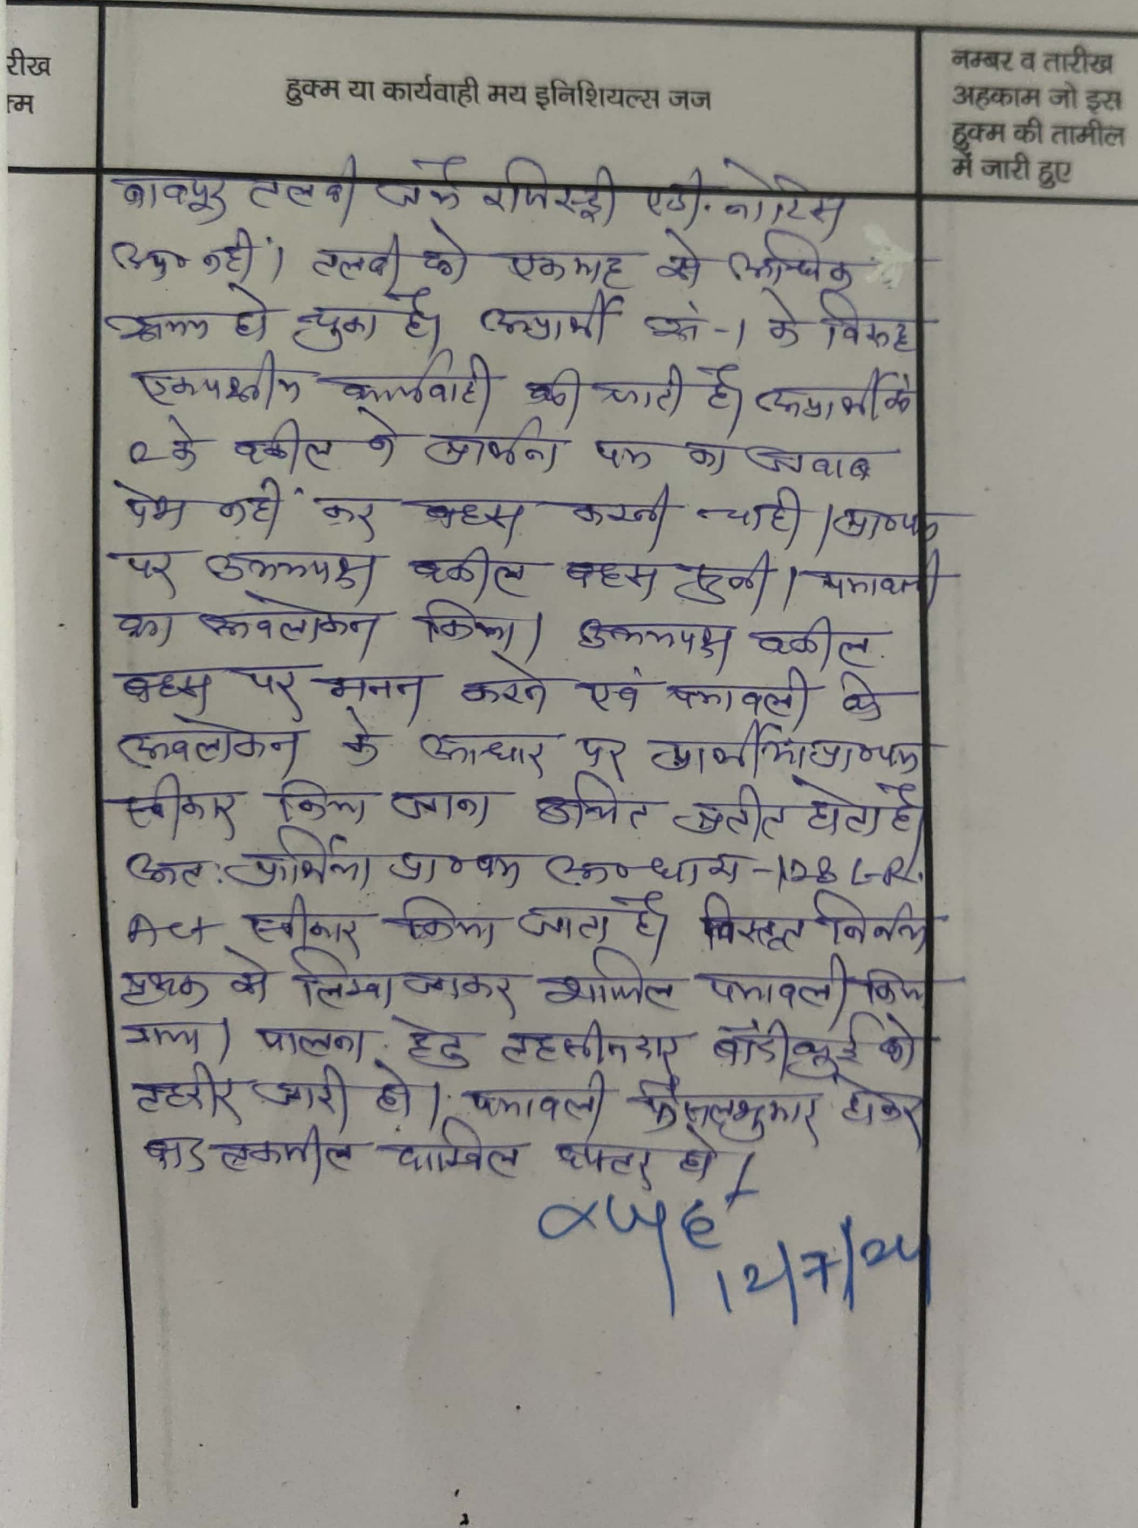 रीख
हुक्म या कार्यवाही मय इनिशियल्स जज
नम्बर व तारीख
अहकाम जो इस
हुक्म की तामील
में जारी हुए
बावजूद तलबी जर्ये रजिस्ट्री एडी. नोटिस
उप० नहीं। तलबी को एक माह से अधिक
समय हो चुका है। अप्रार्थी सं-1 के विरुद्ध
एकपक्षीय कार्यवाही की जाती है। अप्रार्थी
2 के वकील ने प्रार्थना पत्र का जवाब
पेश नहीं कर बहस करनी चाही। प्रा०पत्र
पर उभयपक्ष वकील बहस सुनी। पत्रावली
का अवलोकन किया। उभयपक्ष वकील
बहस पर मनन करने एवं पत्रावली के
अवलोकन के आधार पर प्रार्थीया प्रा०पत्र
स्वीकार किया जाना उचित प्रतीत होता है।
अतः प्रार्थिया प्रा०पत्र अ०धारा -128 L.R.
Act स्वीकार किया जाता है। विस्तृत निर्णय
पृथक से लिखा जाकर शामिल पत्रावली किया
गया। पालना हेतु तहसीलदार बाँदीकुई को
तहरीर जारी हो। पत्रावली फैसलशुमार होकर
बाद तकमील दाखिल दफ्तर हो।
12/7/24